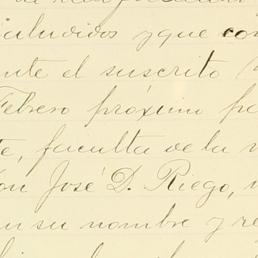 aludidos y que con
ante el suscrito
Febrero próximo pa
te, faculta de la
on José D. Riego,
en su nombre y re